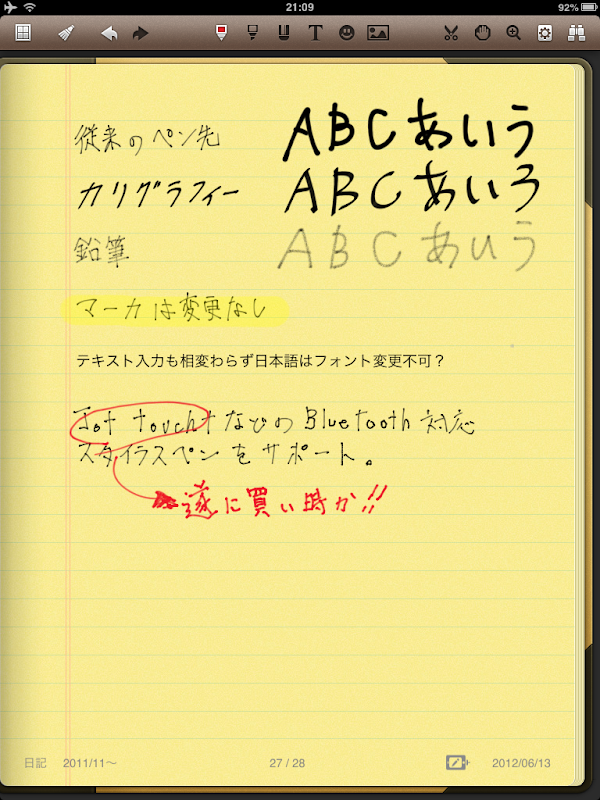 21:09 92%
従来のペン先 ABCあいう
カリグラフィー ABCあいう
鉛筆 ABCあいう
マーカは変更なし
テキスト入力も相変わらず日本語はフォント変更不可？
Jot touchなどのBluetooth対応
スタイラスペンをサポート。
遂に買い時か!!
日記 2011/11〜 27 / 28 2012/06/13